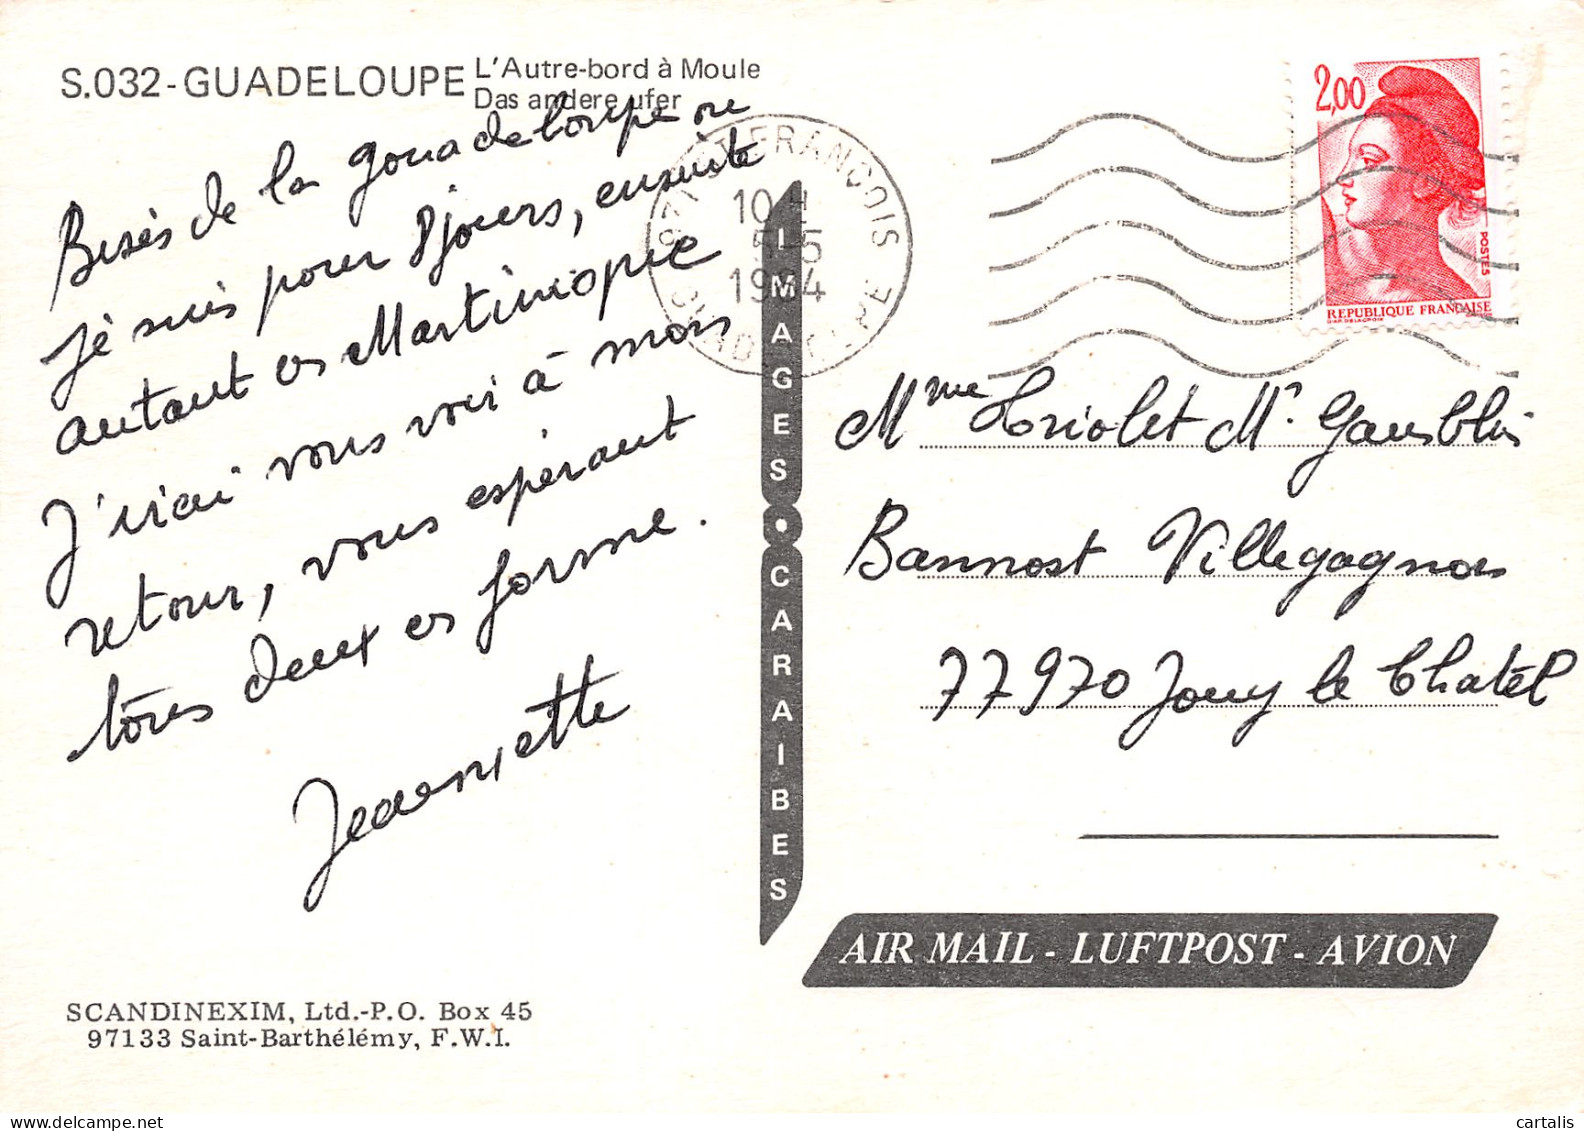 S.032-GUADELOUPE
L'Autre-bord à Moule
Das andere ufer
Bisès de la gouadeloupe ou
je suis pour 8 jours, ensuite
autant en Martinique
J'irai vous voir à mon
retour, vous espérant
tous deux en forme.
Jeannette
ST FRANCOIS
10 H
5-5
1984
GUADELOUPE
2,00
POSTES
REPUBLIQUE FRANÇAISE
D'AP. DELACROIX
IMAGES • CARAIBES
Mme Triolet Mr
Bannost Villegagnon
77970 Jouy le Chatêl
AIR MAIL - LUFTPOST - AVION
SCANDINEXIM, Ltd.-P.O. Box 45
97133 Saint-Barthélémy, F.W.I.
cartalis